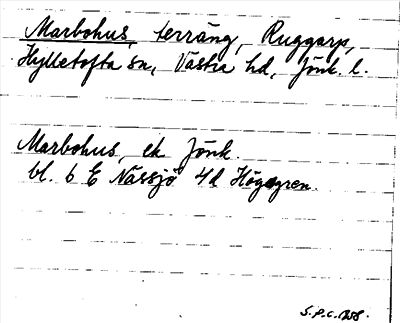 Marbohus, terräng, Ruggarp,
Hylletofta sn, Västra hd, Jönk. l.
Marbohus, ek Jönk.
bl. 6 E Nässjö 4d Höggren.
S.P.C. 1958.